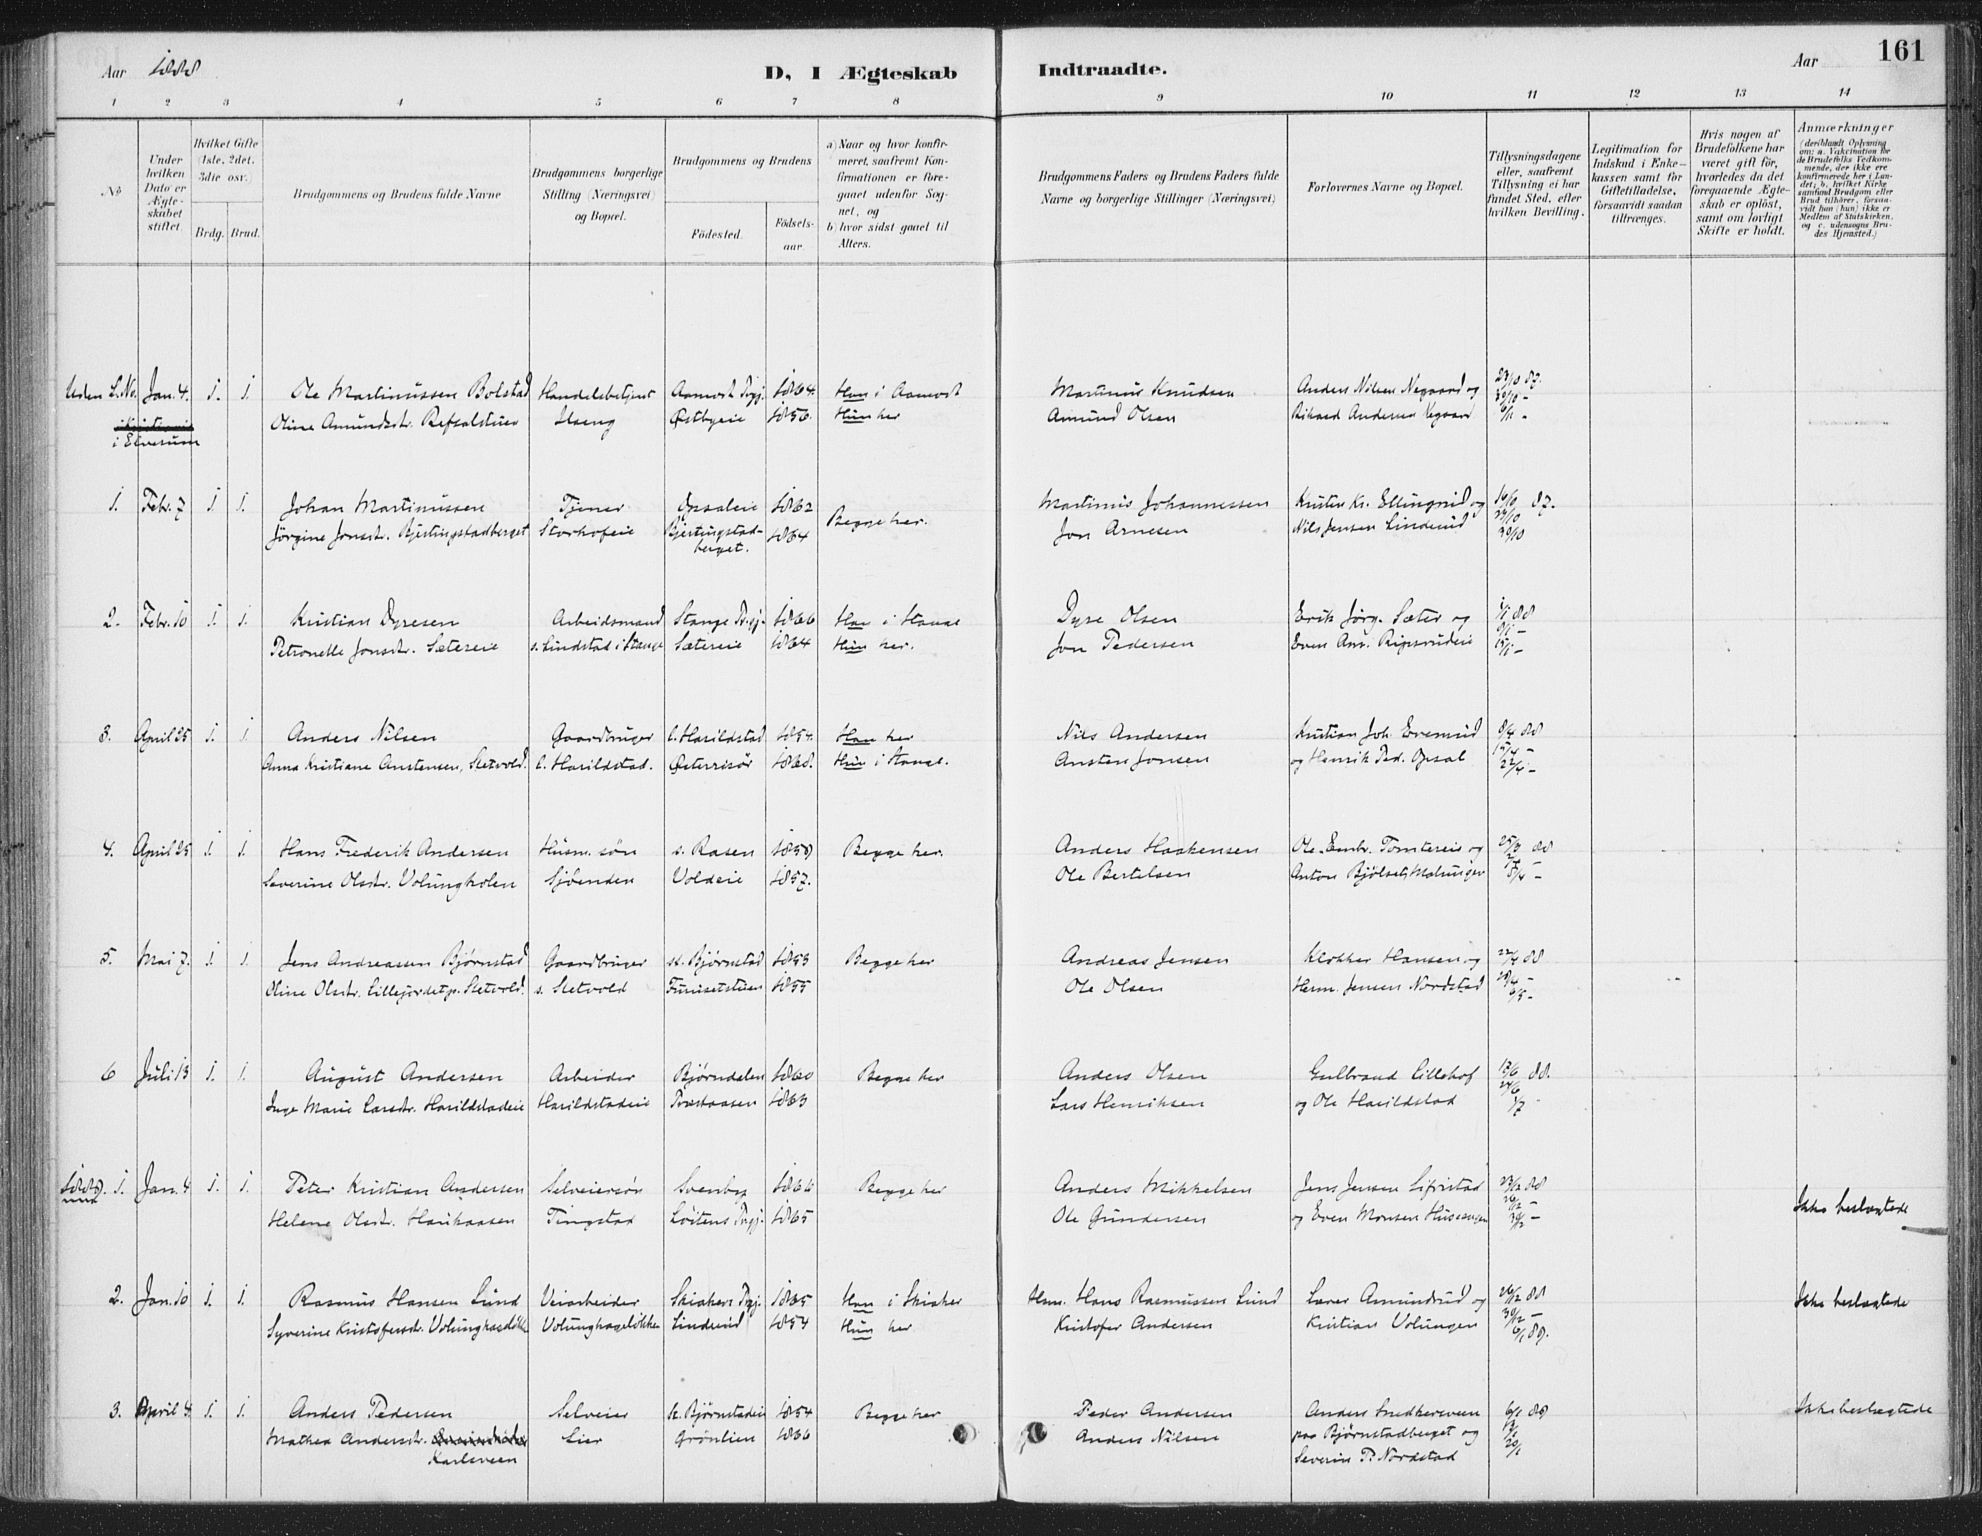 Aar 1888
D, I Ægteskab Indtraadte.
Aar
161
1 2 3 4 5 6 7 8 9 10 11 12 13 14
No
Under hvilken Dato er Ægteskabet stiftet.
Hvilket Gifte (1ste, 2det, 3die osv.)
Brdg. Brud.
Brudgommens og Brudens fulde Navne
Brudgommens borgerlige Stilling (Næringsvei) og Bopæl.
Brudgommens og Brudens
Fødested.
Fødselsaar.
a) Naar og hvor konfirmeret, saafremt Konfirmationen er foregaaet udenfor Sognet, og
b) hvor sidst gaaet til Alters.
Brudgommens Faders og Brudens Faders fulde Navne og borgerlige Stillinger (Næringsvei)
Forlovernes Navne og Bopæl.
Tillysningsdagene eller, saafremt Tillysning ei har fundet Sted, efter hvilken Bevilling.
Legitimation for Indskud i Enkekassen samt for Giftetilladelse, forsaavidt saadan tiltrænges.
Hvis nogen af Brudefolkene har været gift før, hvorledes da det foregaaende Ægteskab er opløst, samt om lovligt Skifte er holdt.
Anmærkninger (deriblandt Oplysning om: a. Vakcination for de Brudefolks Vedkommende, der ikke ere konfirmerede her i Landet; b. hvilket Kirkesamfund Brudgom eller Brud tilhører, forsaavidt han (hun) ikke er Medlem af Statskirken, og c. udensogns Brudes Hjemsted.)
Uden L. No. Jan. 4. 1. 1. Ole Martinussen Bolstad Handelsbetjent Aamodt Prgj. 1864. Han i Aamodt Martinus Knudsen Anders Nilsen Nygaard og 23/10 87.
i Elverum Oline Amundsdtr. Refsalstuen Ilseng Østbyeie 1856. Hun her Amund Olsen Rikard Andersen Nygaard 30/10 – 6/11 –
1. Febr. 7 1 1. Johan Martinussen Tjener Opsaleie 1862 Begge her. Martinus Johannessen Kristen Kr. Ellingsrud og 16/10 87.
Jørgine Jonsdtr. Bjertingstadberget Storhofeie Bjertingstadberget. 1864 Jon Arnesen Nils Jensen Linderud 23/10 30/10
2. Febr. 10 1. 1. Kristian Dyresen Arbeidsmand Stange Prgj. 1866 Han i Stange Dyre Olsen Erik Jörg. Sæter og 1/1 88
Petronelle Jonsdtr. Sætereie s. Lindstad i Stange Sætereie 1864 Hun her. Jon Pedersen Even Ans. Ripsrudeie 8/1 – 15/1 –
3. April 25 1. 1 Anders Nilsen Gaardbruger l. Harildstad 1854. Han her Nils Andersen Kristian Joh. Evensrud 8/4 88
Anna Kristiane Anstensen, Sletvold. l. Harildstad. Østerrisør 1868. Hun i Stange. Ansten Jonsen og Henrik Ped. Opsal 15/4 – 22/4 –
4. April 25 1. 1. Hans Frederik Andersen Husm. søn s. Rasen 1859 Begge her. Anders Haakensen Ole Embr. Tomtereie og 25/3 88
Severine Olsdtr. Volungholen Sjøenden Voldeie 1857. Ole Bertelsen Anton Bjølset, Malrungen 8/4 –
5. Mai 7. 1. 1. Jens Andreassen Bjørnstad Gaardbruger st. Bjørnstad 1853 Begge her Andreas Jensen Klokker Hansen og 22/4 88
Oline Olsdtr. Lillejordet p. Sletvold. s. Sletvold Furusetstuen 1855 Ole Olsen Herm. Jensen Nordstad 29/4 – 6/5 –
6 Juli 13 1. 1. August Andersen Arbeider Bjørndalen 1860 Begge her Anders Olsen Gulbrand Lillehof 17/6 88.
Inge Marie Larsdtr. Harildstadeie Harildstadeie Præstaasen 1863 Lars Henriksen og Ole Harildstad 24/6 1/7
1889. 1. Jan. 4 1. 1. Peter Kristian Andersen Selveiersøn Svenby 1864 Begge her Anders Mikkelsen Jens Jensen Lifristad 23/12 88
Helene Olsdtr. Haukaasen Tingstad Løitens Prgj. 1865 Ole Gundersen og Even Monsen Husevangen 26/12 – 30/12 – Ikke beslægtede
2. Jan. 10 1. 1. Rasmus Hansen Lund Veiarbeider Skiakers Prgj. 1865 Han i Skiaker Hm. Hans Rasmussen Lund Lærer Amundrud og 26/12 88 Ikke beslægtede
Syverine Kristofersdtr. Volunghagaløkke Volunghageløkke Linderud 1854 Hun her Kristofer Andersen Kristian Volungen 30/12 – 6/1 89.
3. April 4. 1. 1. Anders Pedersen Selveier st. Bjørnstadeie 1854 Begge her Peder Andersen Anders Snekkersveen 6/1 89 Ikke beslægtede
Mathea Andersdtr. Karlsveen Lier Grønlien 1866 Anders Nilsen paa Bjørnstadberget og 13/1
Severin P. Nordstad 20/1